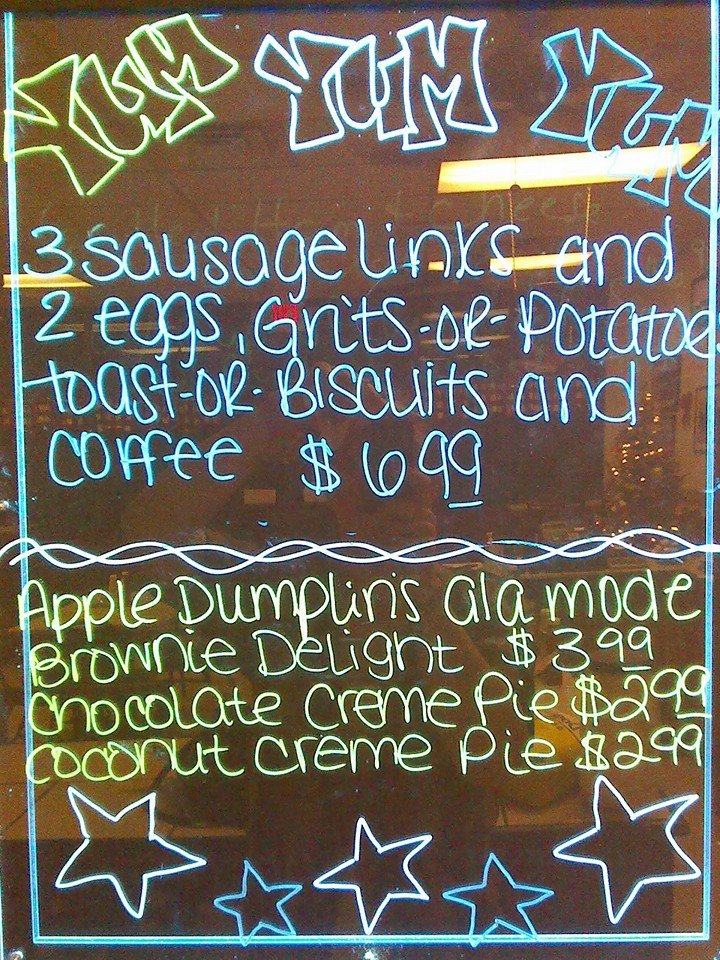 YUM YUM YUM
3 sausage links and
2 eggs, Grits-OR-Potatoe
toast-OR-Biscuits and
coffee $6.99
Apple Dumplin's ala mode
Brownie Delight $3.99
Chocolate Creme Pie $2.99
Coconut Creme Pie $2.99